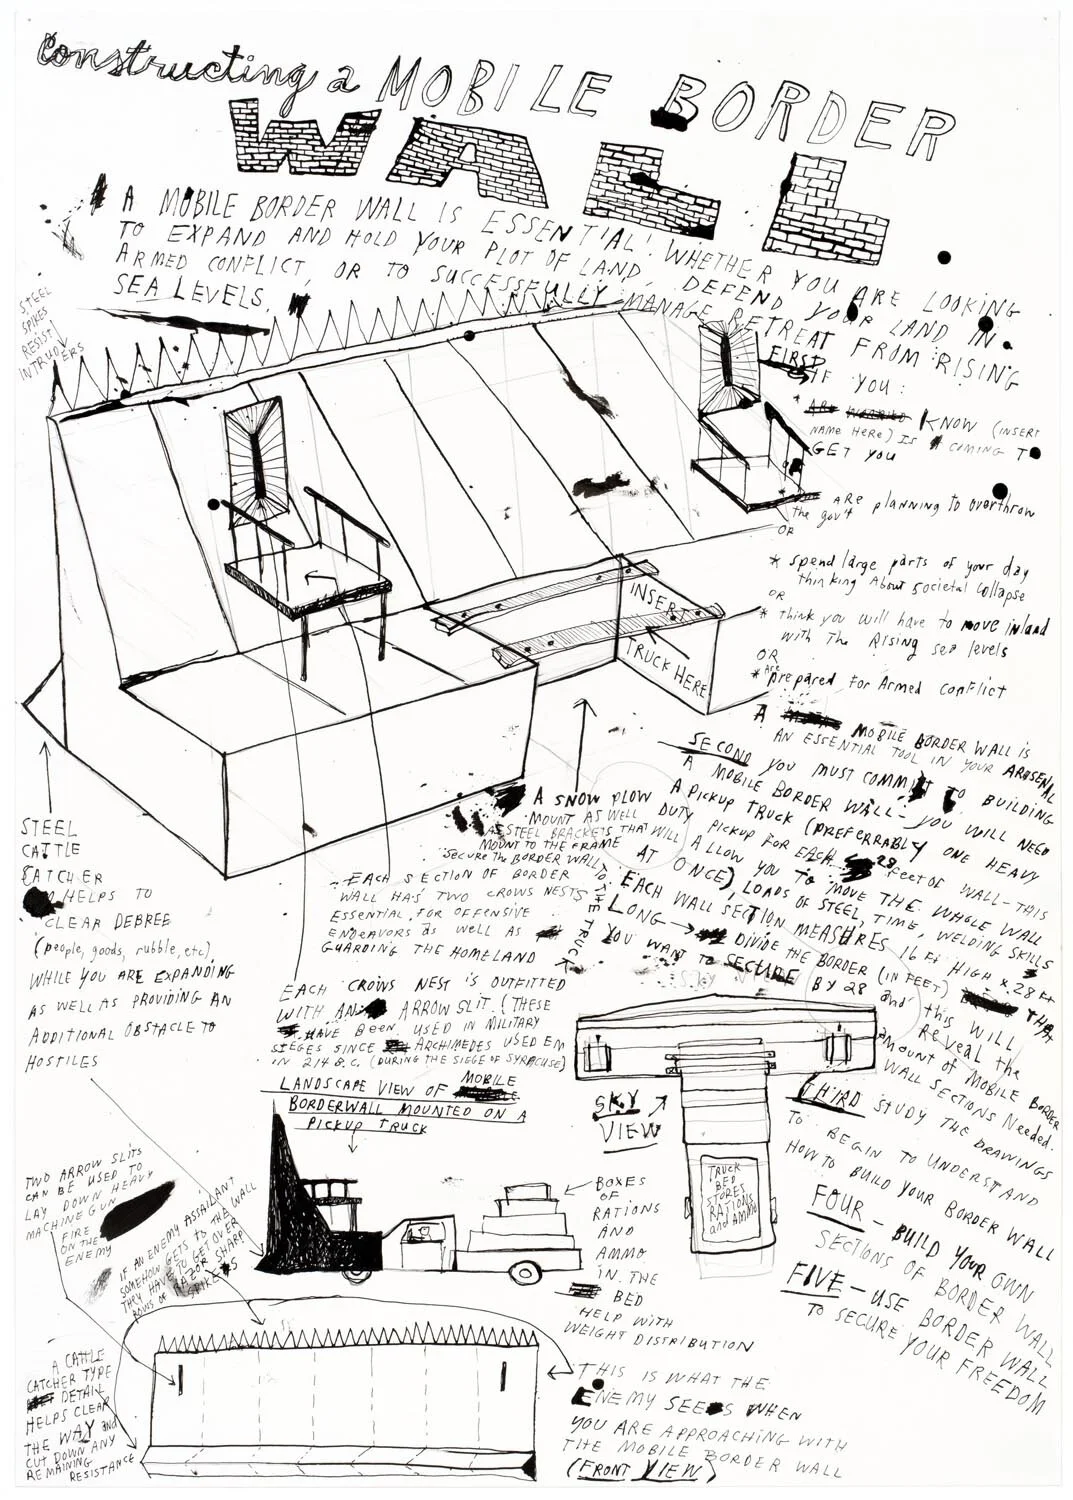 Constructing a MOBILE BORDER
WALL
A MOBILE BORDER WALL IS ESSENTIAL! WHETHER YOU ARE LOOKING
TO EXPAND AND HOLD YOUR PLOT OF LAND, DEFEND YOUR LAND IN
ARMED CONFLICT, OR TO SUCCESSFULLY MANAGE RETREAT FROM RISING
SEA LEVELS.
STEEL
SPIKES
RESIST
INTRUDERS
FIRST
IF YOU:
* KNOW (INSERT
NAME HERE) IS COMING TO
GET YOU
* ARE planning to overthrow
the gov't
OR
* spend large parts of your day
thinking About societal collapse
OR
* think you will have to move inland
with The Rising sea levels
OR
* Are prepared For Armed conflict
A MOBILE BORDER WALL IS
AN ESSENTIAL TOOL IN YOUR ARSENAL
INSERT
TRUCK HERE
SECOND YOU MUST COMMIT TO BUILDING
A MOBILE BORDER WALL - YOU WILL NEED
A PICKUP TRUCK (PREFERRABLY ONE HEAVY
DUTY PICKUP FOR EACH 28 FEET OF WALL - THIS
WILL ALLOW YOU TO MOVE THE WHOLE WALL
AT ONCE), LOADS OF STEEL, TIME, WELDING SKILLS
EACH WALL SECTION MEASURES 16 FT HIGH x 28 FT
LONG → DIVIDE THE BORDER (IN FEET) THAT
YOU WANT TO SECURE BY 28 and this WILL
Reveal the
amount of MOBILE BORDER
WALL SECTIONS Needed.
A SNOW PLOW
MOUNT AS WELL
AS STEEL BRACKETS THAT WILL
MOUNT TO THE FRAME
Secure The BORDER WALL
TO THE TRUCK
EACH SECTION OF BORDER
WALL HAS TWO CROWS NESTS
ESSENTIAL FOR OFFENSIVE
ENDEAVORS AS WELL AS
GUARDING THE HOMELAND
STEEL
CATTLE
CATCHER
HELPS TO
CLEAR DEBREE
(people, goods, rubble, etc)
WHILE YOU ARE EXPANDING
AS WELL AS PROVIDING AN
ADDITIONAL OBSTACLE TO
HOSTILES
EACH CROWS NEST IS OUTFITTED
WITH AN ARROW SLIT. (THESE
HAVE BEEN USED IN MILITARY
SIEGES SINCE ARCHIMEDES USED EM
IN 214 B.C. (DURING THE SIEGE OF SYRACUSE)
LANDSCAPE VIEW OF MOBILE
BORDERWALL MOUNTED ON A
PICKUP TRUCK
SKY
VIEW
TRUCK
BED
STORES
RATIONS
and AMMO
THIRD STUDY THE DRAWINGS
TO BEGIN TO UNDERSTAND
HOW TO BUILD YOUR BORDER WALL
FOUR - BUILD YOUR OWN
SECTIONS OF BORDER WALL
FIVE - USE BORDER WALL
TO SECURE YOUR FREEDOM
TWO ARROW SLITS
CAN BE USED TO
LAY DOWN HEAVY
MACHINE GUN
FIRE
ON THE
ENEMY
IF AN ENEMY ASSAILANT
SOMEHOW GETS TO THE WALL
THEY HAVE TO GET OVER
ROWS OF RAZOR SHARP
SPIKES
BOXES
OF
RATIONS
AND
AMMO
IN THE
BED
HELP WITH
WEIGHT DISTRIBUTION
A CATTLE
CATCHER TYPE
DETAIL
HELPS CLEAR
THE WAY and
CUT DOWN ANY
REMAINING
RESISTANCE
THIS IS WHAT THE
ENEMY SEES WHEN
YOU ARE APPROACHING WITH
THE MOBILE BORDER WALL
(FRONT VIEW)